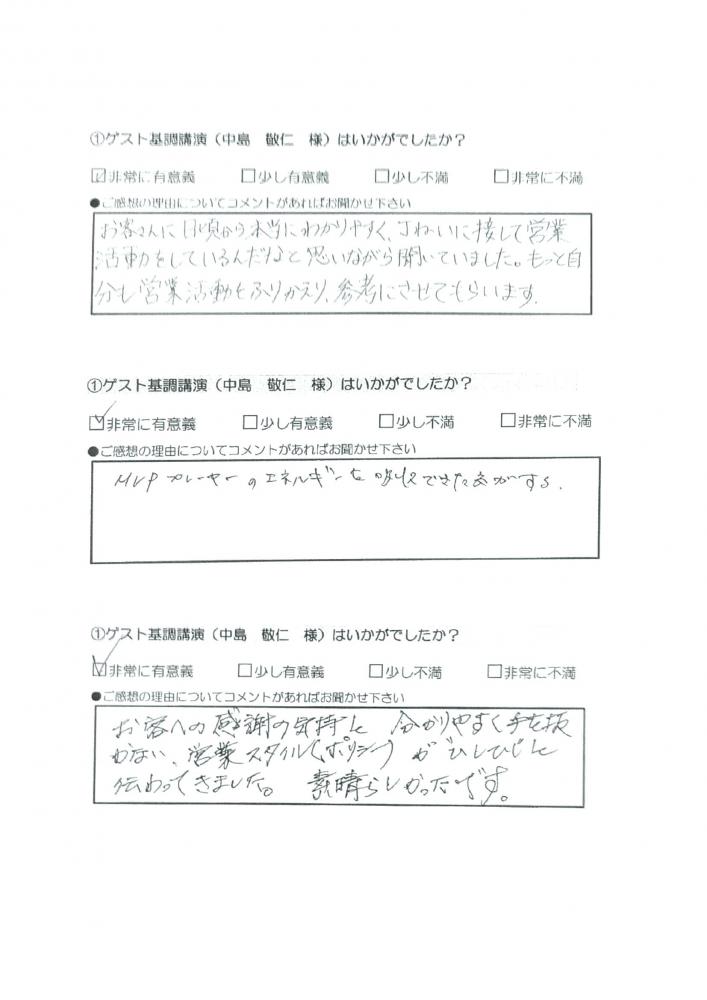 ①ゲスト基調講演（中島　敬仁　様）はいかがでしたか？
☑非常に有意義　□少し有意義　□少し不満　□非常に不満
●ご感想の理由についてコメントがあればお聞かせ下さい
お客さんに日頃から本当にわかりやすく、てねいに接して営業
活動をしているんだなと思いながら聞いていました。もっと自
分も営業活動をふりかえり、参考にさせてもらいます。
①ゲスト基調講演（中島　敬仁　様）はいかがでしたか？
☑非常に有意義　□少し有意義　□少し不満　□非常に不満
●ご感想の理由についてコメントがあればお聞かせ下さい
MVPプレーヤーのエネルギーを吸収できた気がする.
①ゲスト基調講演（中島　敬仁　様）はいかがでしたか？
☑非常に有意義　□少し有意義　□少し不満　□非常に不満
●ご感想の理由についてコメントがあればお聞かせ下さい
お客への感謝の気持と　分かりやすく手を抜
かない、営業スタイル(ポリシー)がひしひしと
伝わってきました。　素晴らしかったです。